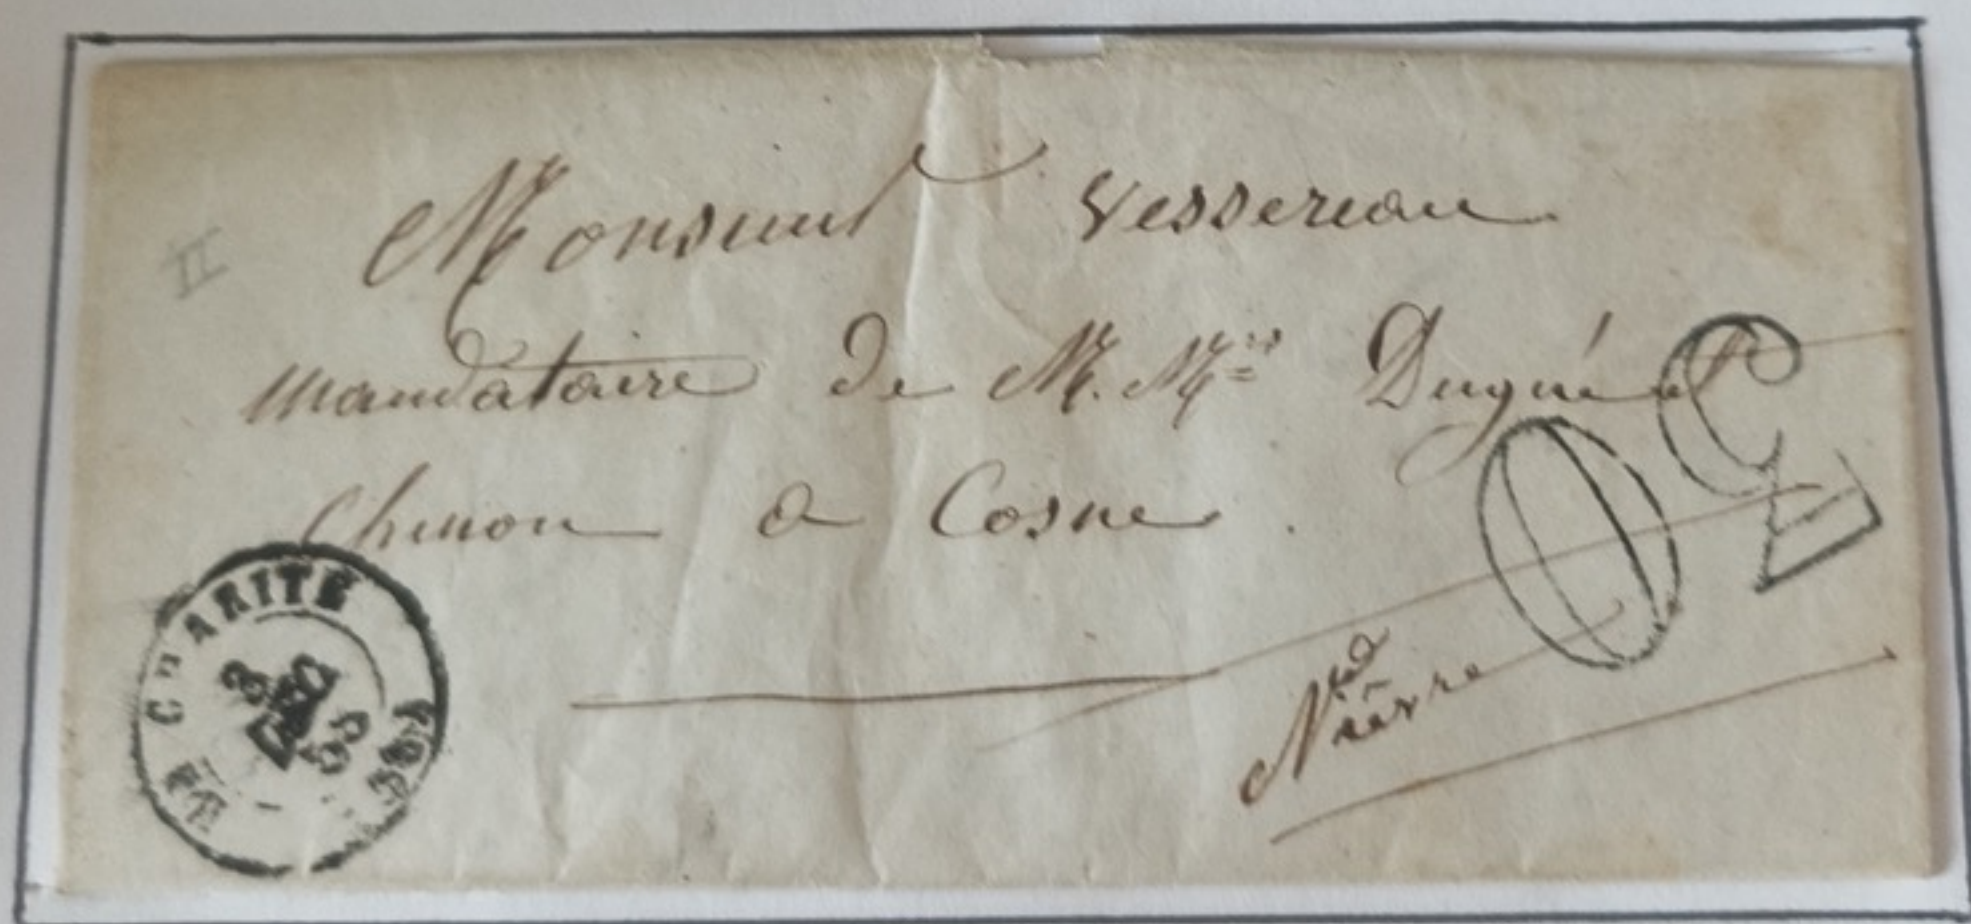 II
Monsieur Vessereau
mandataire de M. Mrs Dugué et
Chenon a Cosne.
Nièvre
30
LA CHARITÉ
3
DEC
55